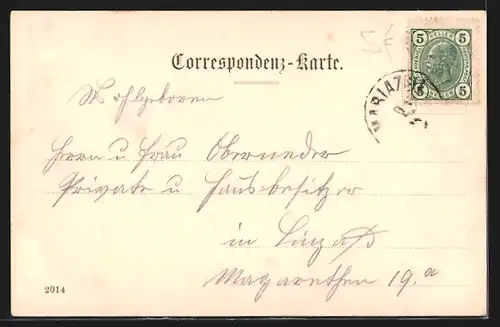 5 5
5 5
5k
Correspondenz-Karte.
MARIAZ
Wohlgeboren
Herrn u Frau Oberneder
Private u Hausbesitzer
in Linz a/D
Magarethen 19.a
2014